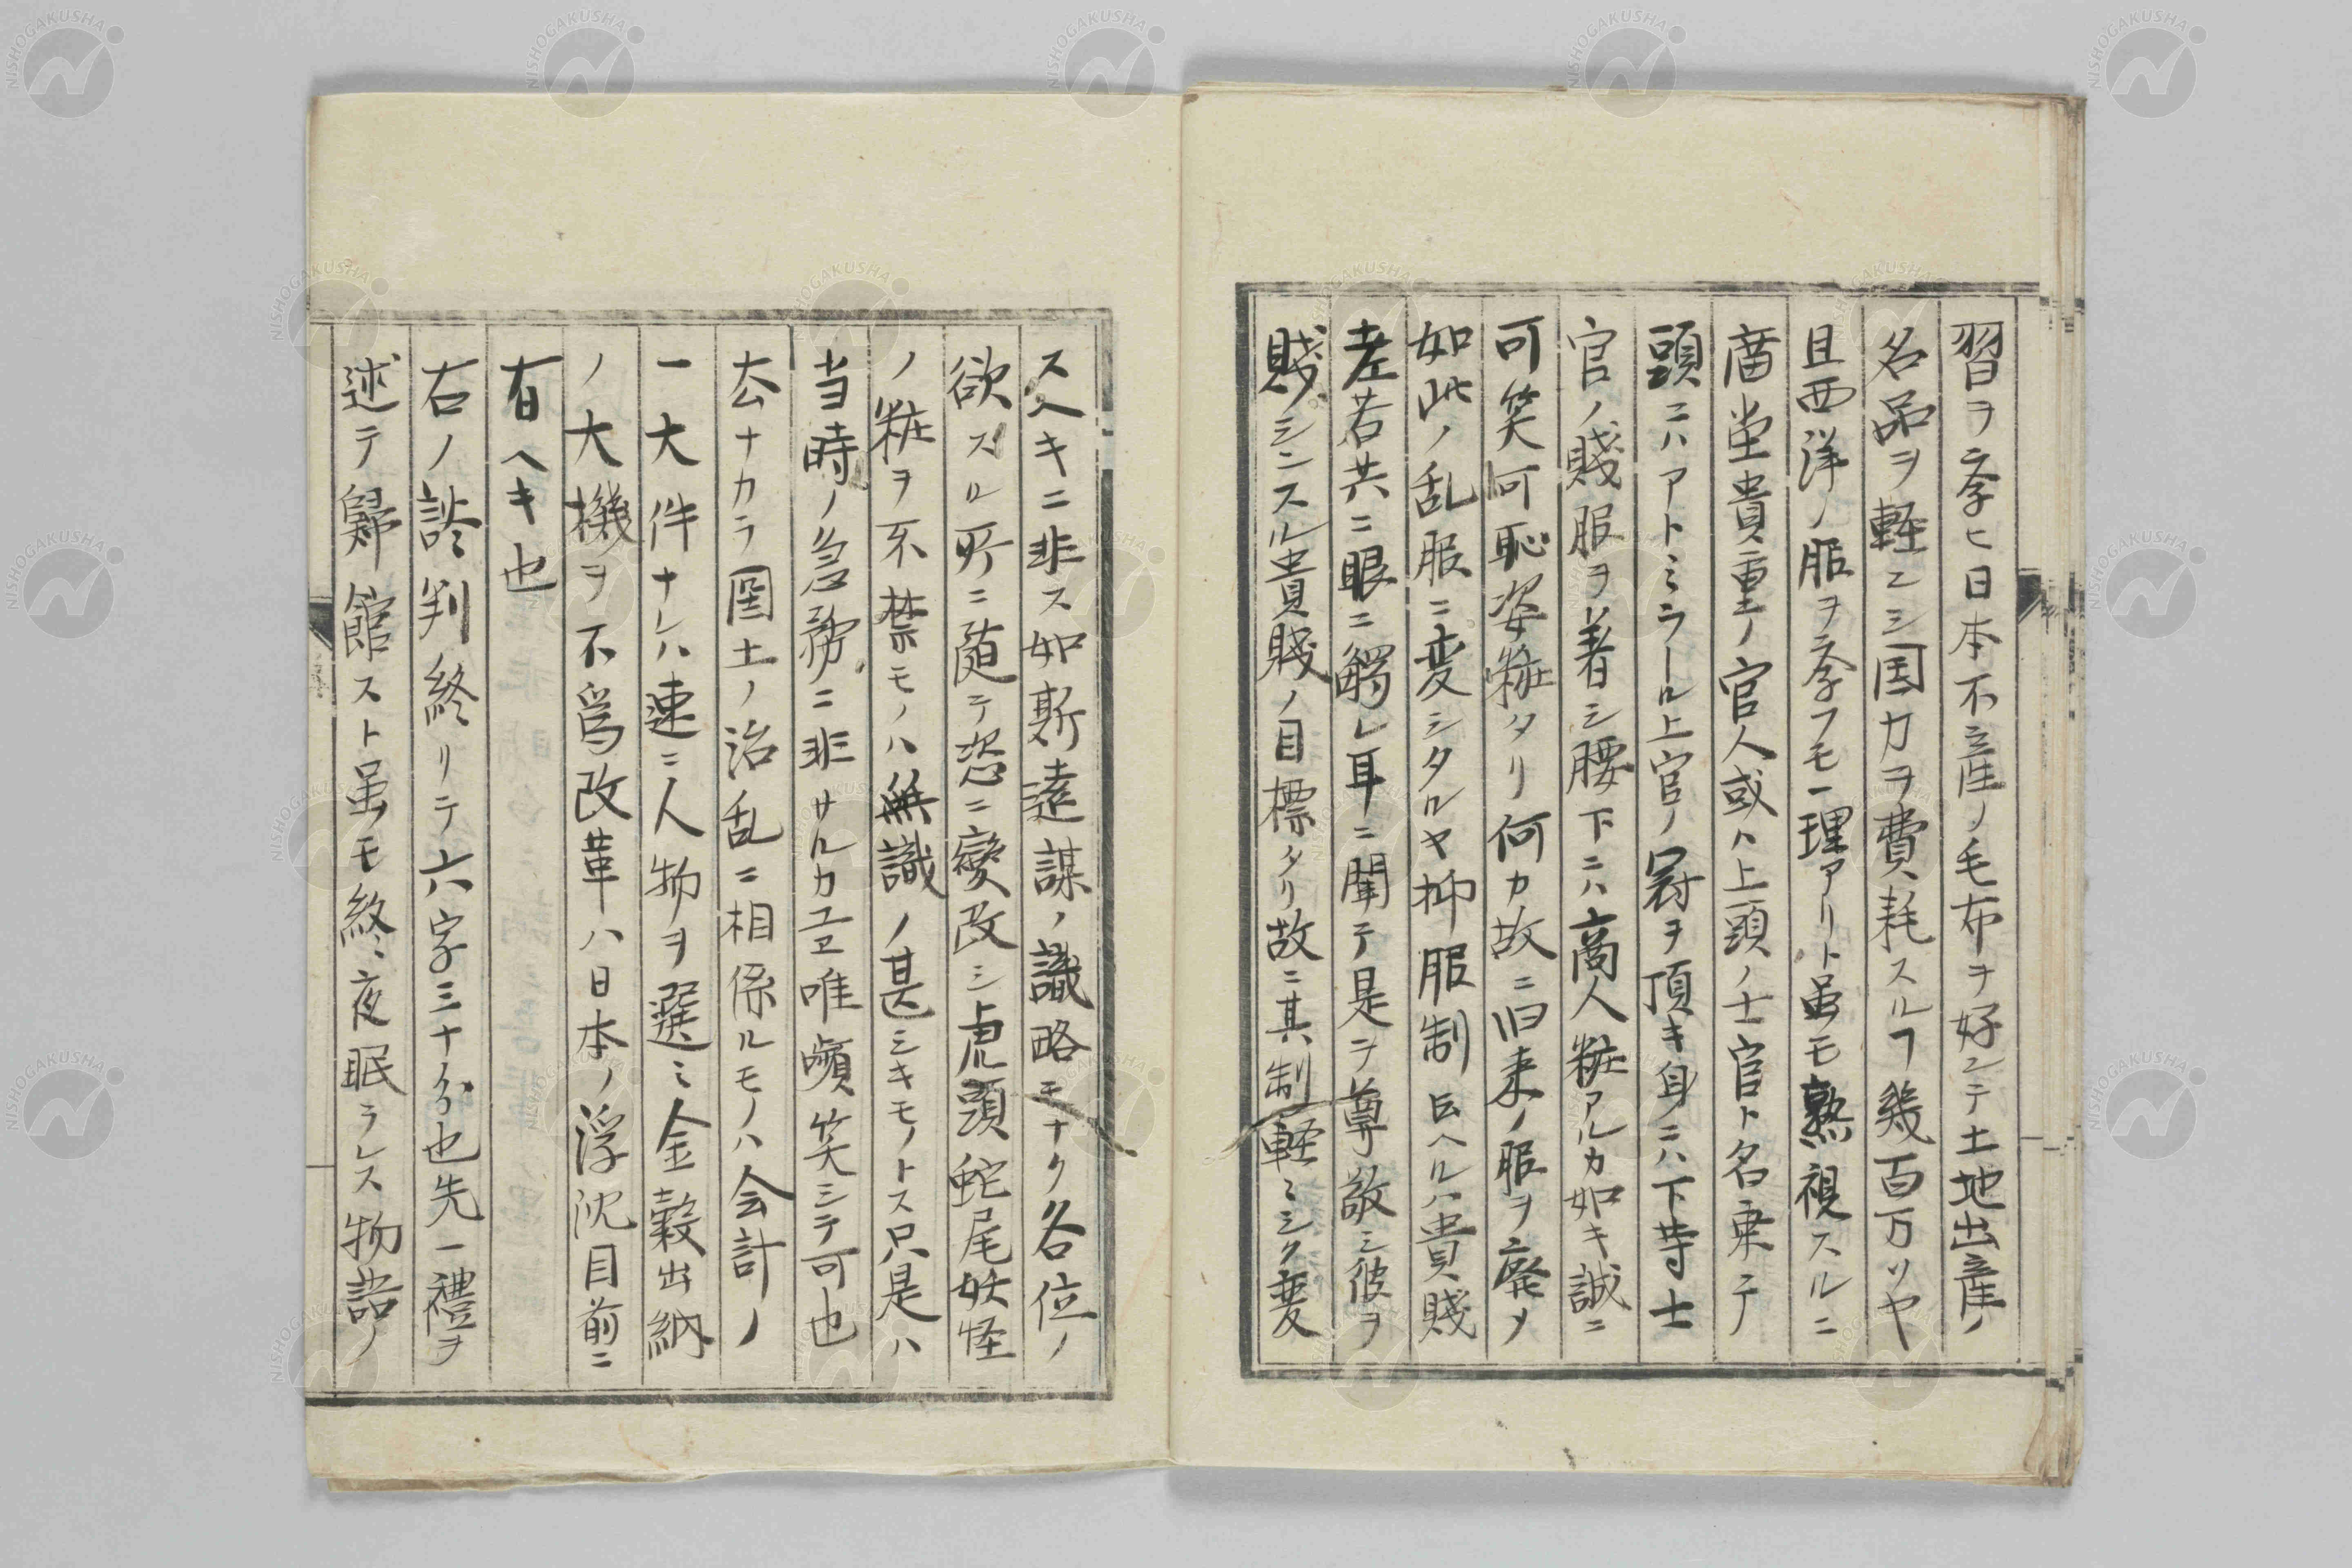 習ヲ孝ヒ日本不産ノ毛布ヲ好ンテ土地出産ノ
名品ヲ軽ンシ国力ヲ費耗スルヿ幾百万ソヤ
且西洋ノ服ヲ孝フモ一理アリト虽モ熟視スルニ
庿堂貴重ノ官人或ハ上頭ノ士官ト名乗テ
頭ニハアトミラール上官ノ冠ヲ頂キ身ニハ下等士
官ノ賤服ヲ著シ腰下ニハ商人粧アルカ如キ誠ニ
可笑可恥姿粧タリ何カ故ニ旧来ノ服ヲ廃メ
如此ノ乱服ニ変シタルヤ抑服制ト云ヘルハ貴賤
差若共ニ眼ニ觸レ耳ニ聞テ是ヲ尊敬シ彼ヲ
賤シンスル貴賤ノ目標タリ故ニ其制軽ミシク変
スヘキニ非ス如斯遠謀ノ識略モナク各位ノ
欲スル所ニ随テ恣ニ變改シ虎頭蛇尾妖怪
ノ粧ヲ不禁モノハ無識ノ甚シキモノトス只是ハ
当時ノ急務ニ非サルカ故唯嚬笑シテ可也
太ナカラ国土ノ治乱ニ相係ルモノハ会計ノ
一大件ナレハ速ニ人物ヲ選ミ金穀出納
ノ大機ヲ不爲改革ハ日本ノ浮沈目前ニ
有ヘキ也
右ノ談判終リテ六字三十分也先一禮ヲ
述テ歸館スト虽モ終夜眠ラレス物語ノ
NISHOGAKUSHA